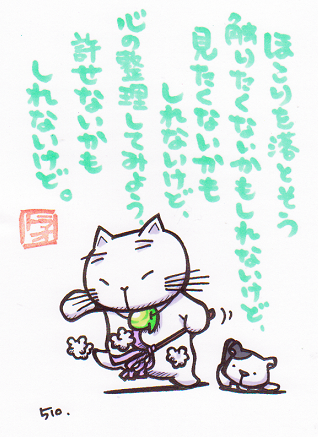 ほこりを落とそう
触りたくないかもしれないけど、
見たくないかも
しれないけど、
心の整理してみよう
許せないかも
しれないけど。
510.